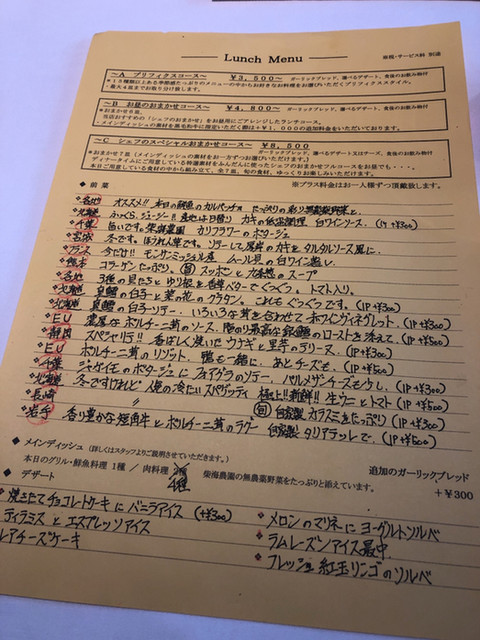 Lunch Menu
消費税・サービス料 別途
～A プリフィクスコース～ ￥3,500～ ガーリックブレッド、選べるデザート、食後のお飲み物付
＊15種類以上ある季節感たっぷりのメニューの中からお好きなお料理をお選びいただくプリフィクススタイル。
・最大4皿までお取り分け致します。
～B お昼のおまかせコース～ ￥4,800～ ガーリックブレッド、選べるデザート、食後のお飲み物付
＊おまかせ6皿。
当店おすすめの「シェフのおまかせ」をお昼用にアレンジしたランチコース。
・メインディッシュの素材を黒毛和牛に指定いただく際は＋￥1,000の追加料金をいただいております。
～C シェフのスペシャルおまかせコース～ ￥8,500
ガーリックブレッド、選べるデザート又はチーズ、食後のお飲み物付
＊おまかせ7皿（メインディッシュの素材をお一方ずつお選びいただけます。）
ディナータイムにご用意している特選素材をふんだんに使ったシェフのおまかせフルコースをお昼でも・・・
本日ご用意している食材の中から組み立て、全7皿、旬の食材、ゆっくりお楽しみいただけます。
◆前菜 ※プラス料金はお一人様ずつ頂戴致します。
各地 オススメ!! 本日の鮮魚のカルパッチョ たっぷりの彩り無農薬野菜と。
北海道 ふっくら、ジューシー!! カキの低温調理 白ワインソース。(1P +¥300)
千葉 旨いです。 カリフラワーのポタージュ
宮城 冬です。ほうれん草です。ソテーして カキをタルタルソース風に。
フランス 今だけ!! モンサンミッシェル産 ムール貝の白ワイン蒸し。
熊本 コラーゲンたっぷり、(旬) スッポンと のスープ
各地 3種の貝たちとゆり根を香草バターでぐつぐつ。トマト入り。
北海道 真鱈の白子と菜の花のグラタン。これもぐつぐつです。(1P +¥300)
北海道 真鱈の白子ソテー、いろいろな茸を合わせて赤ワインヴィネグレット。(1P +¥300)
EU 濃厚なポルチーニ茸のソース、 のローストを添えて。(1P +¥500)
静岡 スペシャリテ!! 香ばしく焼いたウナギと里芋のテリーヌ。(1P +¥300)
EU ポルチーニ茸のリゾット。鴨も一緒に。あとチーズも。(1P +¥500)
千葉 ジャガイモのポタージュにフォアグラのソテー、パルメザンチーズも少し。(1P +¥300)
北海道 冬ですけれど 人気の冷たいスパゲッティ 極上!!新鮮!! 生ウニとトマト (1P +¥500)
長崎 〃 (旬) 自家製カラスミをたっぷり (1P +¥300)
岩手 香り豊かな短角牛とポルチーニ茸のラグー 自家製タリアテッレで。(1P +¥500)
◆メインディッシュ（詳しくはスタッフよりご説明させていただきます。）
本日のグリル・鮮魚料理 1種 / 肉料理 4種 柴海農園の無農薬野菜をたっぷりと添えています。
追加のガーリックブレッド
＋￥300
◆デザート
焼きたてチョコレートケーキにバニラアイス (+¥300)
ティラミスとエスプレッソアイス
レアチーズケーキ
メロンのマリネにヨーグルトソルベ
ラムレーズンアイス最中
フレッシュ紅玉リンゴのソルベ